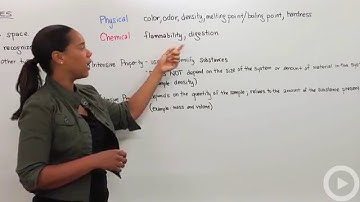 ES
Physical color, odor, density, melting point/boiling point, hardness
space
Chemical flammability, digestion
recogniz
other t
Intensive Property - used identify substances
DOES NOT depend on the size of the system or amount of material in the system
(example: density)
depends on the quantity of the sample, relates to the amount of the substance present
(example: mass and volume)